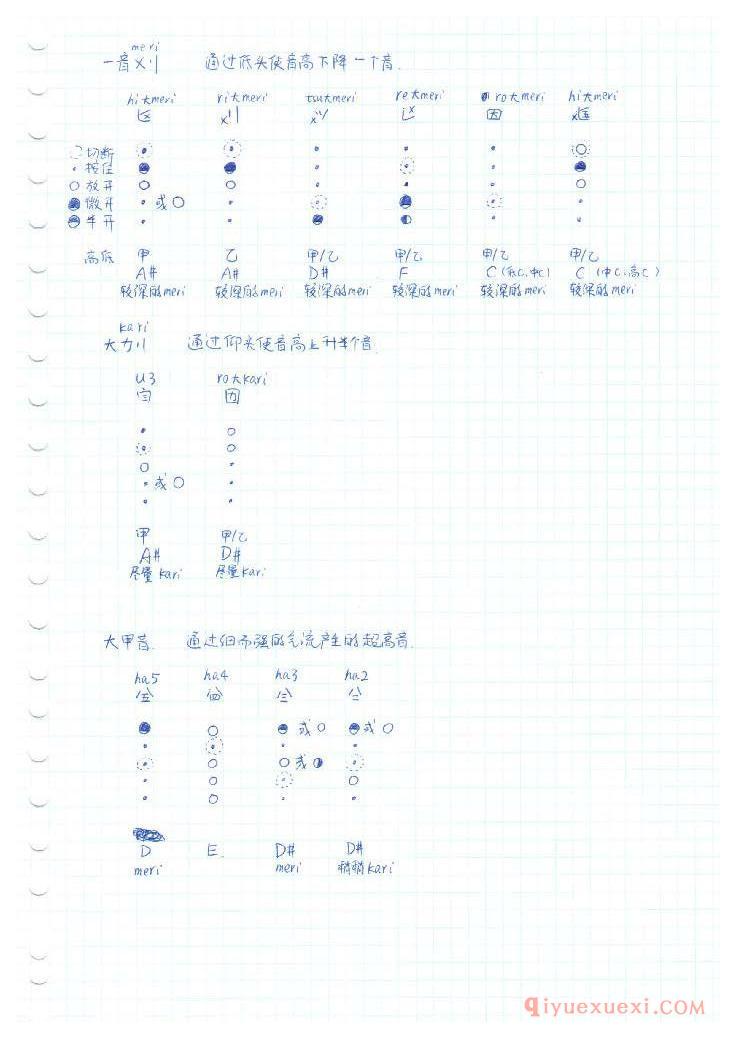 meri
一音メリ 通过低头使音高下降一个音.
hi大meri ri大meri tsu大meri re大meri ro大meri hi大meri
切断
按住
放开
微开 或
半开
高低 甲 乙 甲/乙 甲/乙 甲/乙 甲/乙
A# A# D# F C(低C,中C) C(中C,高C)
较深的meri 较深的meri 较深的meri 较深的meri 较深的meri 较深的meri
kari
大カリ 通过仰头使音高上升半个音.
u3 ro大kari
或
甲 甲/乙
A# D#
尽量kari 尽量kari
大甲音. 通过细而强的气流产生的超高音.
ha5 ha4 ha3 ha2
或 或
或
D E D# D#
meri meri 稍稍kari
qiyuexuexi.COM